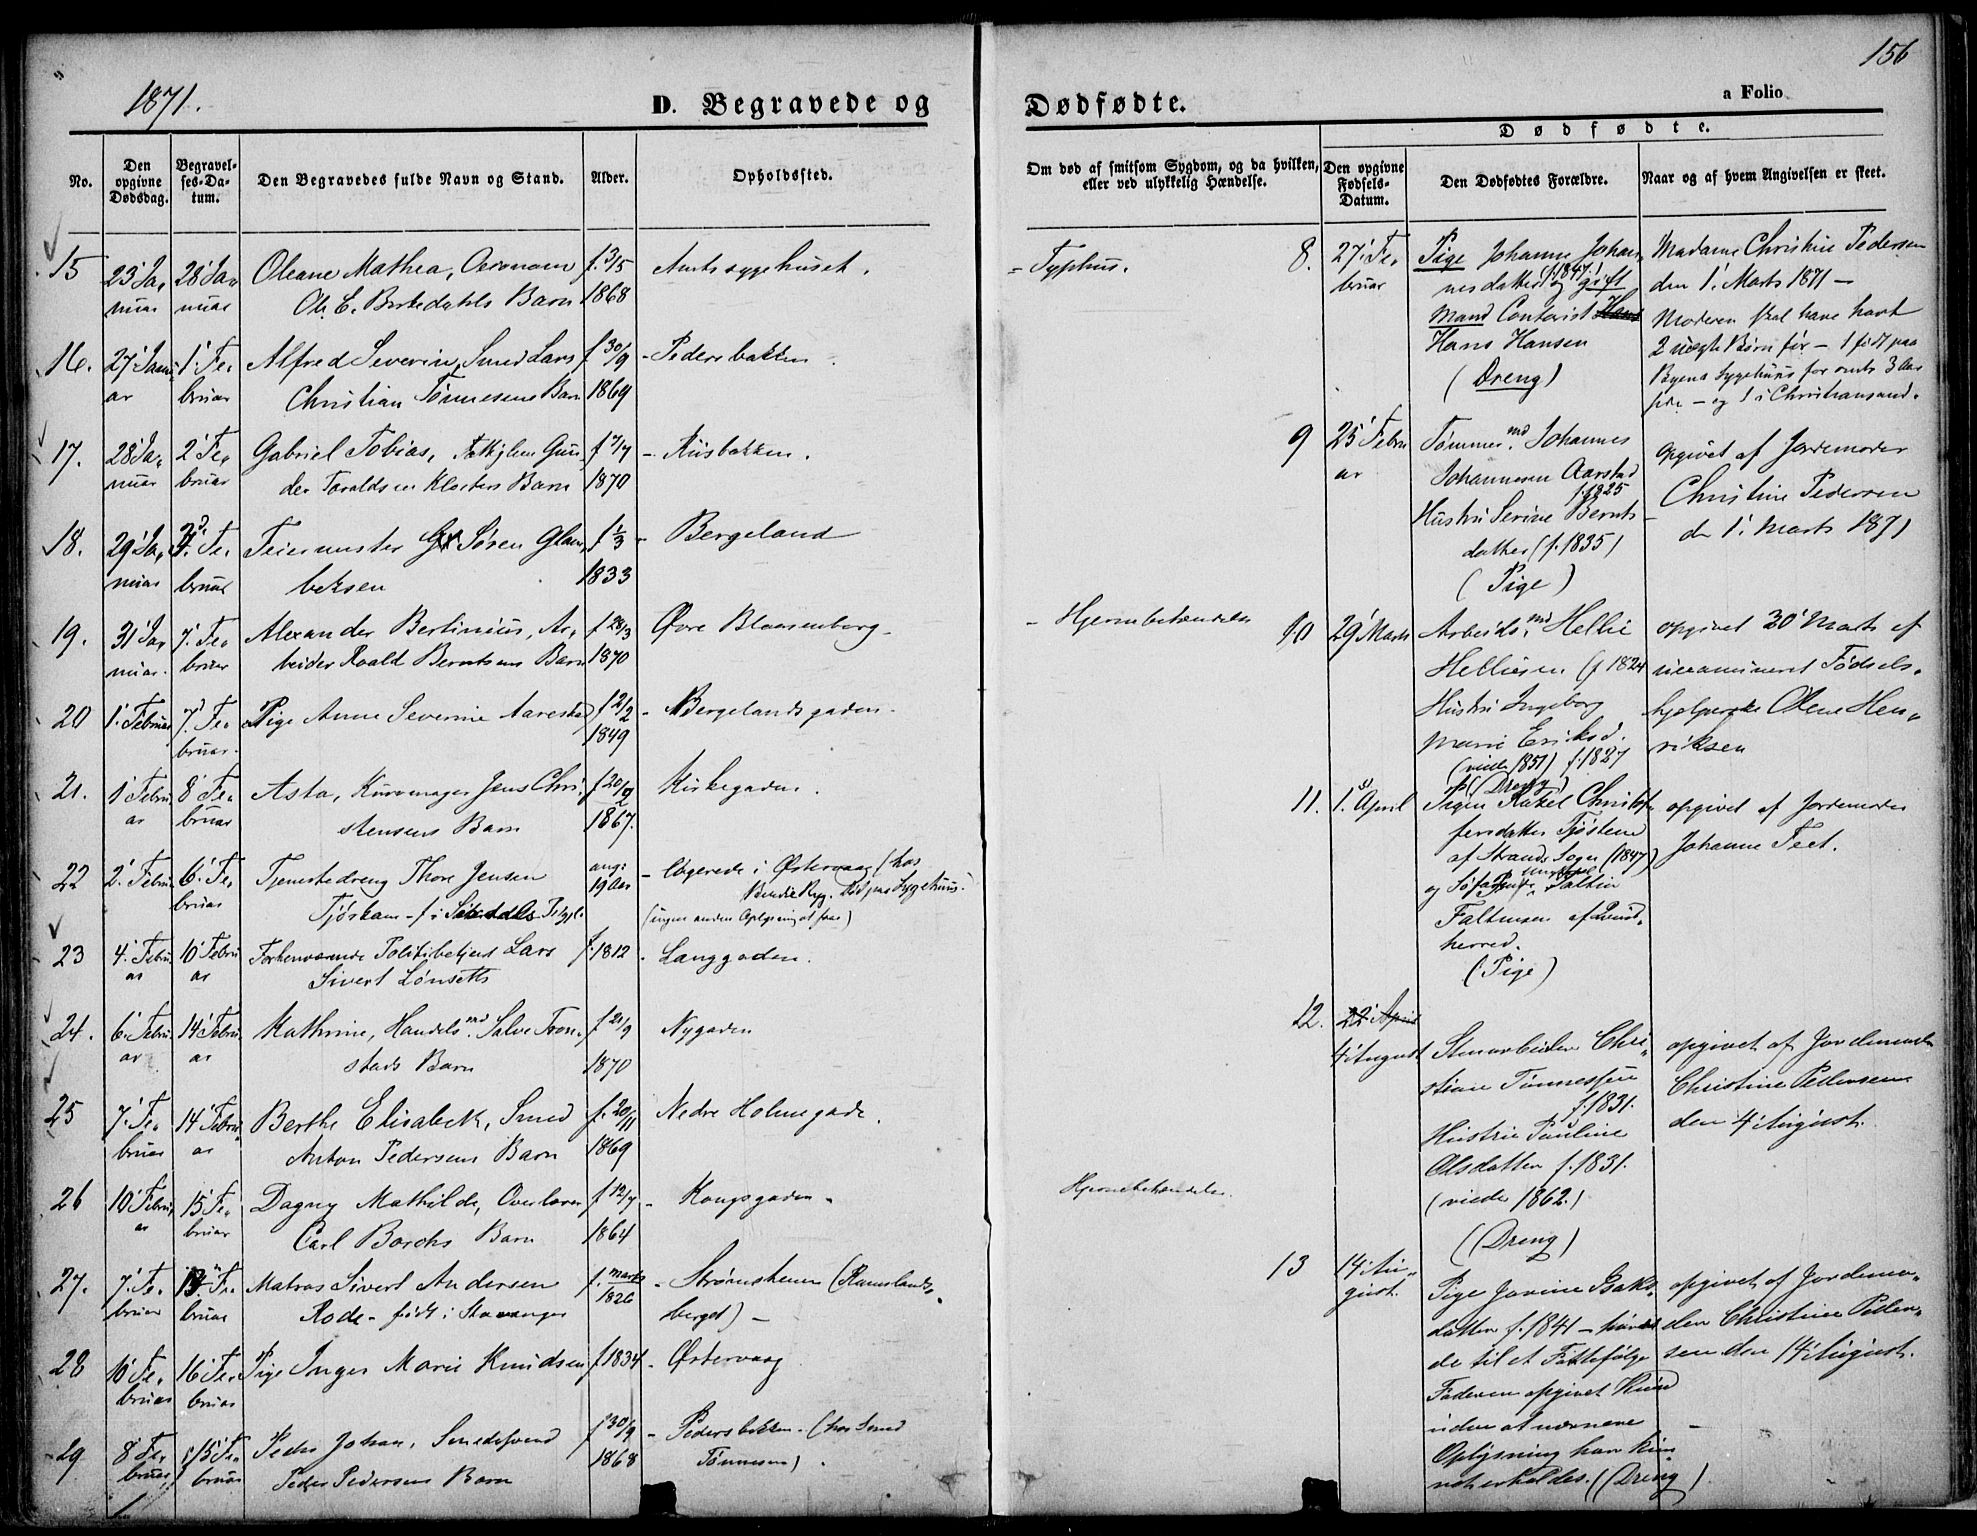 1871.
D. Begravede og
No.
Den opgivne Dødsdag.
Begravelses-Datum.
Den Begravedes fulde Navn og Stand.
Alder.
Opholdssted.
15
23' Ja-
nuar
28' Ja-
nuar
Oleane Mathea,
Ole E. Birkedahls Barn
f. 3/5
1868
Amtssygehuset.
16.
27' Janu-
ar
1' Fe-
bruar
Alfred Severin, Smed Lars
Christian Tønnesens Barn
f 30/9
1869
- Pedersbakken
17.
28' Ja-
nuar
2' Fe-
bruar
Gabriel Tobias,
Taraldsen Klosters Barn
1870
18.
29' Ja-
nuar
Fe-
bruar
Feiermester Søren Glam-
beksen
f 1/3
1833
- Bergeland
19.
31' Ja-
nuar.
7' Fe-
bruar
Alexander Bertinius, Ar-
beider Roald Berntsens Barn
f 28/3
1870
Øvre Blaasenborg
20
1' Februar
7' Fe-
bruar.
Pige Anne Severine Aarestad
f 12/2
1849
- Bergelandsgaden.
21.
1' Febru-
ar
8' Fe-
bruar
Asta, Kurvmager Jens Chri-
stensens Barn
f 20/2
1867.
Kirkegaden.
22
2' Febru
6' Fe-
bruar
Tjenestedreng Thore Jensen
Tjøskam - f i
ang:
19 Aar
- logerede i Østervaag (hos
Ryg. Død paa Sygehuus.
(ingen anden Oplysning at faae)
23
4' Febru-
ar
10' Febru-
ar
Forhenværende Politibetjent Lars
Sivert Lønseths
f. 1812
- Langgaden.
24.
6' Febru-
ar
14' Febru-
ar
Kathrine, Handelsmd. Salve Tron-
stads Barn
f 21/9
1870
Nygaden
25
7' Fe-
bruar
14' Febru-
ar
Berthe Elisabeth, Smed
Anton Pedersens Barn
f. 20/11
1869
Nedre Holmegade.
26
10' Febru-
ar
15' Fe-
bruar
Dagny Mathilde, Overlærer
Carl Borchs Barn
f 12/7
1864
- Kongsgaden.
27.
7' Fe-
bruar
Fe-
bruar
Matros Sivert Andersen
Rode - født i Stavanger
f. Marts
1826
- Strømstenen (Ramslands-
berget) -
28
10' Fe-
bruar
16' Fe-
bruar
Pige Inger Marie Knudsen
f 1834
- Østervaag
29
8' Fe-
bruar
15' Fe-
bruar
Peder Johan, Smedesvend
Peder Pedersens Barn
f 30/9
1868
- Pedersbakken - (hos Smed
Tønnesen).
156
a Folio
Dødfødte.
Dødfødte.
Om død af smitsom Sygdom, og da hvilken,
eller ved ulykkelig Hændelse.
Den opgivne Fødsels-Datum.
Den Dødfødtes Forældre.
Naar og af hvem Angivelsen er skeet.
- Typhus.
- Hjernebetændelse
Hjernebetændelse.
8.
27' Fe-
bruar
Pige Johanne Johan-
nesdatter (f. 1847) gift
Mand Contorist Hans
Hans Hansen
(Dreng)
Madame Christine Pedersen
den 1' Marts 1871 -
Moderen skal have havt
2 uegte Børn før - 1 født paa
Byens Sygehuus for omtr 3 Aar
siden - og 1 i Christiansand.
9
25' Febru-
ar
Tømmermd. Johannes
Johannesen Aarstad
f. 1825
Hustri Serine Bernts-
datter (f. 1835)
(Pige)
opgivet af Jordemoder
Christine Pedersen
den 1' Marts 1871
10
29' Marts
Arbeidsmd. Hellie
Helliesen (f 1824
Hustri Ingeborg
Marie Eriksd.
(viede 1851) f. 1827
(Dreng)
opgivet 30' Marts af
uexamineret Fødsels-
hjelperske Olene Hen-
riksen
11.
1' April
Pigen Rakel Christof-
fersdatter Tjøstene
af Strands Sogn (1847)
og Søfarende Ungkarl Faltin
Faltinsen af
herred.
(Pige)
opgivet af Jordemoder
Johanne Teet.
12.
22' April
4' August
Stenarbeider Chri-
stian Tønnessen
f. 1831.
Hustrie Pauline
Olsdatter f. 1831.
(viede 1862.)
(Dreng)
opgivet af Jordemoder
Christine Pedersen
den 4' August.
13
14' Au-
gust.
Pige Javine Isaks-
datter f. 1841 - hører-
de til et Fattefølge
Faderen opgivet
uden at nærmere
Oplysning har kun-
net erholdes. (Dreng)
opgivet af Jordemo-
der Christine Peder-
sen den 14' August.